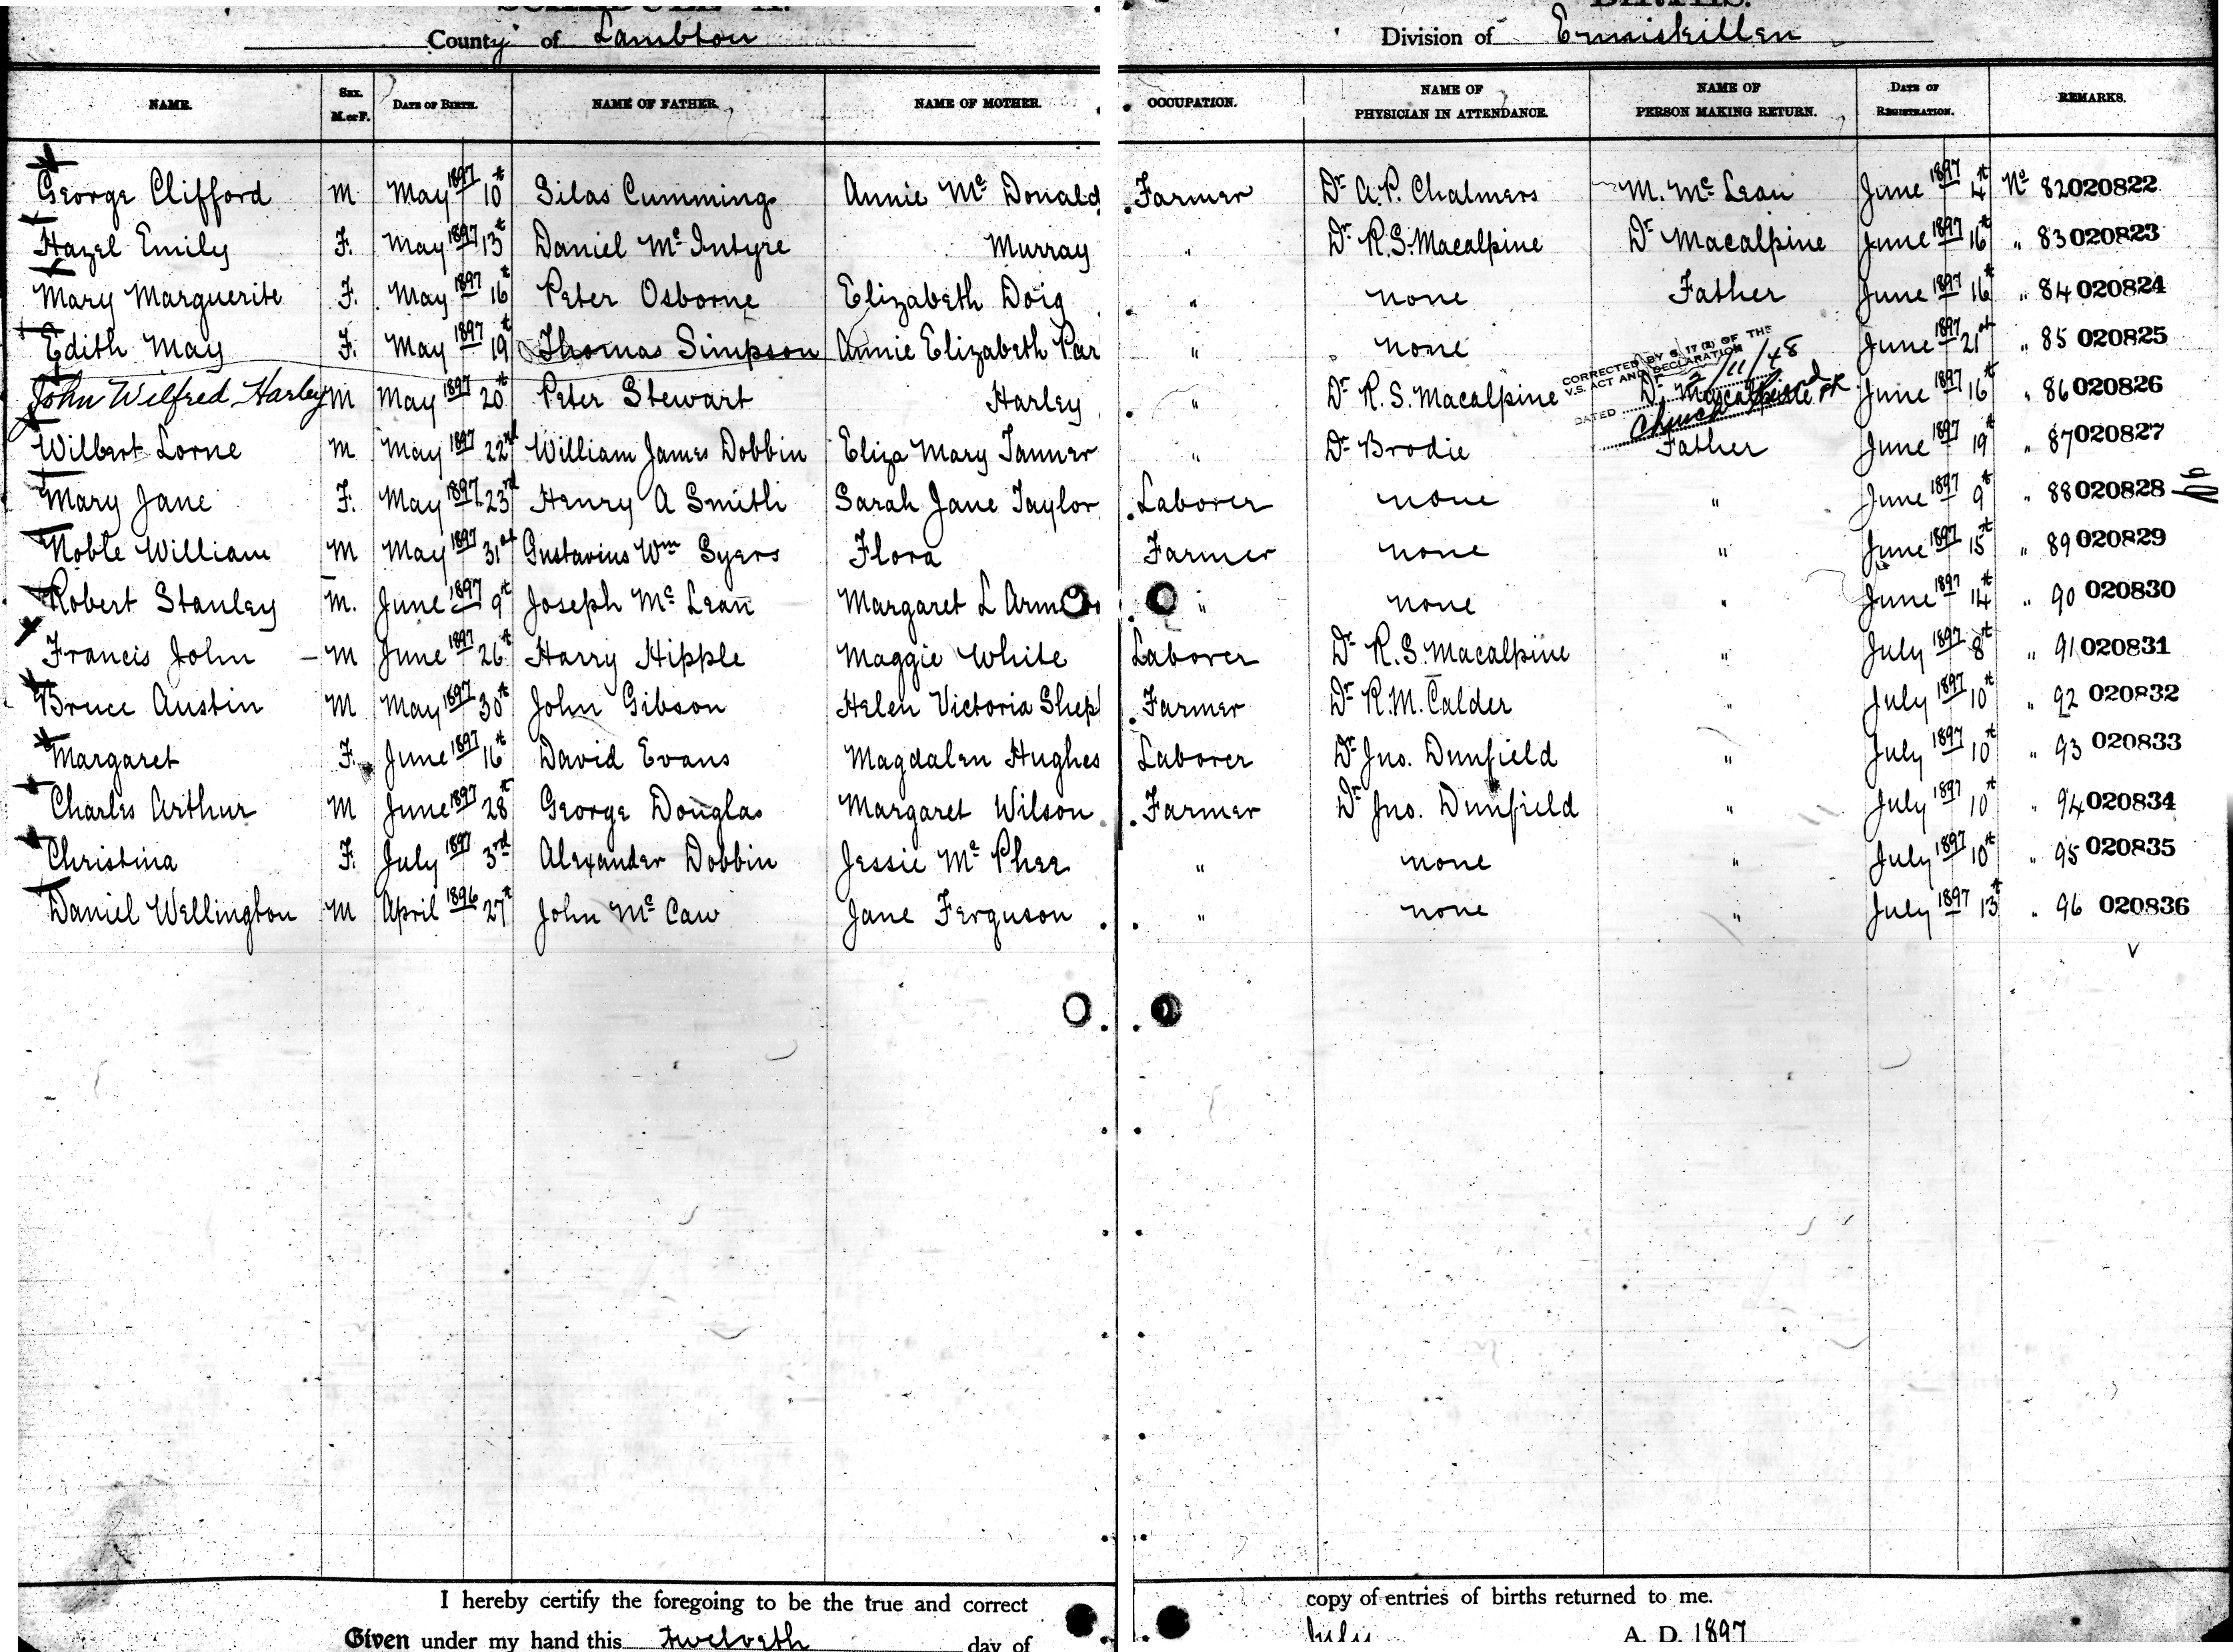 County of Lambton Division of Enniskillen
NAME. SEX. M. or F. DATE OF BIRTH. NAME OF FATHER. NAME OF MOTHER. OCCUPATION. NAME OF PHYSICIAN IN ATTENDANCE. NAME OF PERSON MAKING RETURN. DATE OF REGISTRATION. REMARKS.
George Clifford M May 1897 10t Silas Cumming Annie Mc Donald Farmer Dr A.P. Chalmers M. Mc Lean June 1897 4t No 82 020822
Hazel Emily F. May 1897 13t Daniel Mc Intyre Murray " Dr R.S. Macalpine Dr Macalpine June 1897 16t " 83 020823
Mary Marguerite F. May 1897 16t Peter Osborne Elizabeth Doig " none Father June 1897 16t " 84 020824
Edith May F. May 1897 19t Thomas Simpson Annie Elizabeth Par " none June 1897 21st " 85 020825
CORRECTED BY S. 17 (2) OF THE
V.S. ACT AND DECLARATION
DATED 2/11/48
John Wilfred Harley M May 1897 20t Peter Stewart Harley " Dr R.S. Macalpine Dr Macalpine June 1897 16t " 86 020826
Wilbert Lorne M May 1897 22nd William James Dobbin Eliza Mary Tanner " Dr Brodie Father June 1897 19t " 87 020827
Mary Jane F. May 1897 23rd Henry A Smith Sarah Jane Taylor Laborer none " June 1897 9t " 88 020828
Noble William M May 1897 31st Gustavius Wm Syers Flora Farmer none " June 1897 15t " 89 020829
Robert Stanley M. June 1897 9t Joseph Mc Lean Margaret L " none " June 1897 14t " 90 020830
Francis John M June 1897 26t Harry Hipple Maggie White Laborer Dr R.S. Macalpine " July 1897 8t " 91 020831
Bruce Austin M May 1897 30t John Gibson Helen Victoria Shep Farmer Dr R.M. Calder " July 1897 10t " 92 020832
Margaret F. June 1897 16t David Evans Magdalen Hughes Laborer Dr Jno. Dunfield " July 1897 10t " 93 020833
Charles Arthur M June 1897 28t George Douglas Margaret Wilson Farmer Dr Jno. Dunfield " July 1897 10t " 94 020834
Christina F. July 1897 3rd Alexander Dobbin Jessie Mc Phee " none " July 1897 10t " 95 020835
Daniel Wellington M April 1896 27t John Mc Caw Jane Ferguson " none " July 1897 13t " 96 020836
I hereby certify the foregoing to be the true and correct copy of entries of births returned to me.
Given under my hand this twelveth day of July A. D. 1897